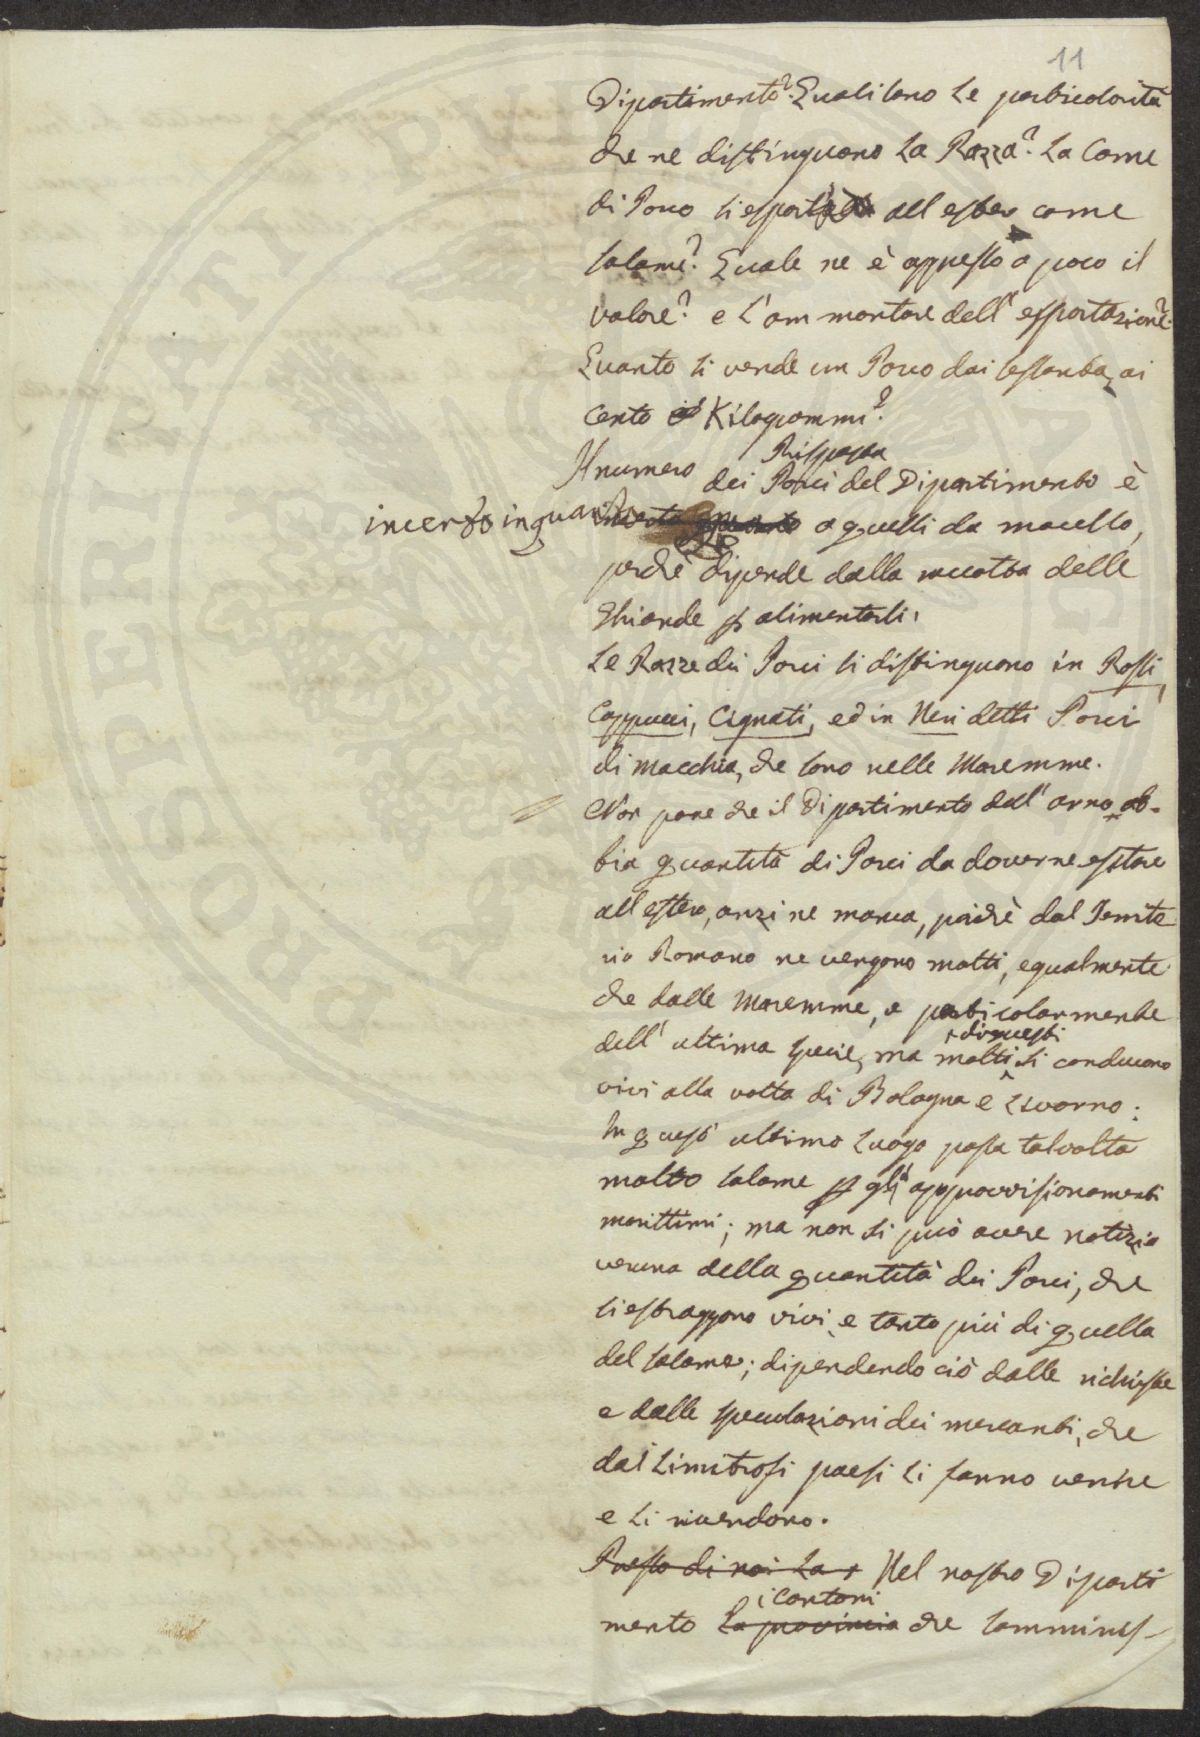 11
Dipartimento? Quali sono le particolarità
che ne distinguono la Razza? La Carne
di Porco si esporta all estero come
salame? Quale ne è appresso a poco il
valore? e l'ammontare dell'esportazione?
Quanto si vende un Porco dai sessanta, ai
cento Kilogrammi?
Risposta
Il numero dei Porci del Dipartimento è
incerto in quanto a quelli da macello,
perchè dipende dalla raccolta delle
Ghiande p alimentarli.
Le Razze dei Porci si distinguono in Rossi,
Cappucci, Cignati, ed in Neri detti Porci
di macchia, che sono nelle Maremme.
Non pare che il Dipartimento dell'arno ab-
bia quantità di Porci da doverne estrare
all estero, anzi ne manca, poichè dal Territo
rio Romano ne vengono molti, egualmente
che dalle Maremme, e particolarmente
dell'ultima specie, ma molti di questi si conducono
vivi alla volta di Bologna e Livorno:
In quest'ultimo Luogo passa talvolta
molto salame p gli approvvisionamenti
marittimi; ma non si può avere notizia
veruna della quantità dei Porci, che
si estraggono vivi, e tanto più di quella
del salame; dipendendo ciò dalle richieste
e dalle speculazioni dei mercanti, che
dai Limitrofi paesi li fanno venire
e li rivendono.
Presso di noi La Nel nostro Diparti
i cantoni
mento La provincia che somminis-